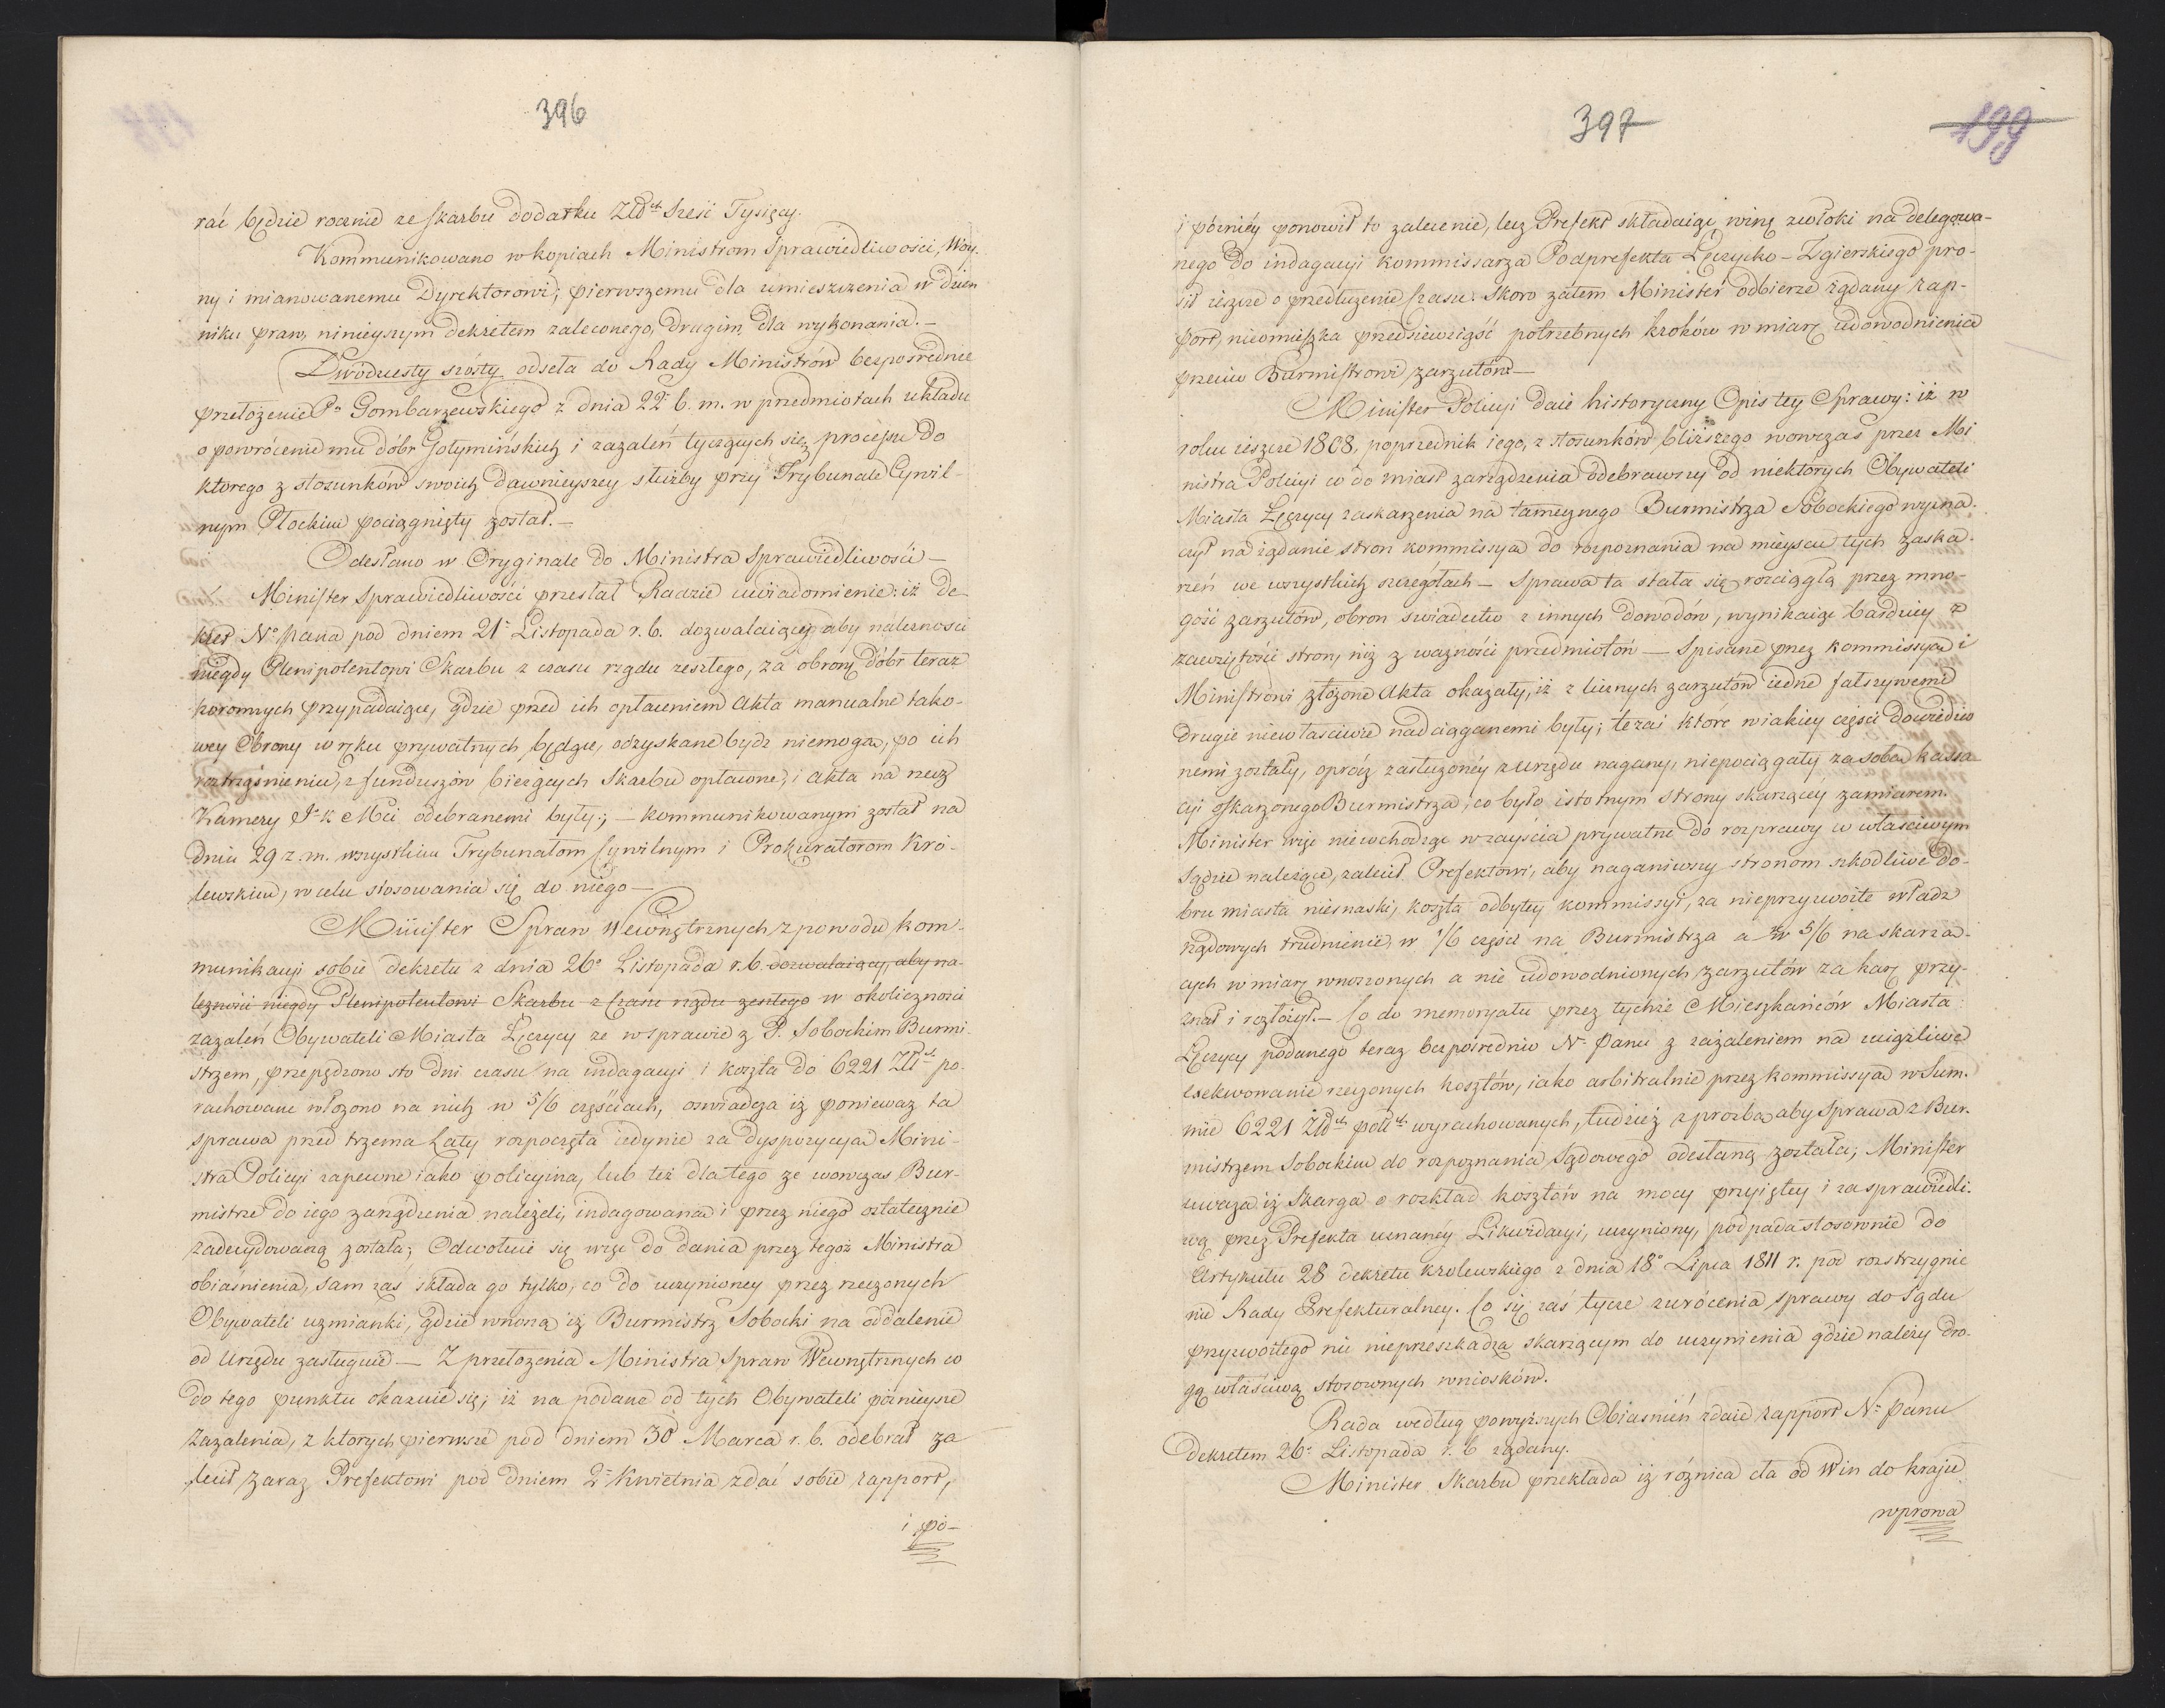 396
rać będzie rocznie ze skarbu dodatku Złłch Sześć Tysięcy.
Kommunikowano w kopiach Ministrom Sprawiedliwości, Woy-
ny i mianowanemu Dyrektorowi; pierwszemu dla umieszczenia w dzien
niku praw, ninieyszym dekretem zaleconego, drugim dla wykonania.—
Dwódziesty szósty odseła do Rady Ministrów bezpośrednie
przełożenie Po Gombarzewskiego z dnia 22o b. m. w przedmiotach układu
o powrócenie mu dóbr Gołymińskich i zazaleń tyczących się processu do
ktorego z stosunków swoich dawnieyszey służby przy Trybunale Cywil-
nym Płockim pociągnięty został.—
Odesłano w Oryginale do Ministra Sprawiedliwości—
Minister Sprawiedliwości przesłał Radzie uwiadomienie: iż De-
kret No Pana pod dniem 21o Listopada r. b. dozwalaiący aby nalezności
niegdy Plenipotentowi Skarbu z czasu rządu zeszłego, za obronę dóbr teraz
koronnych przypadaiące, gdzie przed ich opłaceniem Akta manualne tako-
wey Obrony w ręku prywatnych będące, odzyskane bydz niemogą, po ich
roztrząśnieniu, z funduszów bieżących Skarbu opłacone, i akta na rzecz
Kamery J. K Mci odebranemi były; — kommunikowanym został na
dniu 29 z. m. wszystkim Trybunałom Cywilnym i Prokuratorom Kró-
lewskim, w celu stosowania się do niego—
Minister Spraw Wewnętrznych z powodu kom-
munikacyi sobie dekretu z dnia 26o Listopada r. b. dozwalaiący, aby na-
lezności niegdy Plenipotentowi Skarbu z Czasu rządu zeszłego w okoliczności
zazaleń Obywateli Miasta Łęczycy ze w sprawie z P. Sobockim Burmi-
strzem, przepędzono sto dni czasu na indagacyi i koszta do 6221 Złłch po-
rachowane włożono na nich w 5/6 częściach, oswiadcza iż ponieważ ta
sprawa przed trzema Laty rozpoczęta iedynie za dyspozycyą Mini-
stra Policyi zapewne iako policyina, lub też dla tego ze wowczas Bur-
mistrze do iego zarządzenia należeli, indagowana i przez niego ostatecznie
zadecydowaną została; Odwołuie się więc do dania przez tegoż Ministra
obiaśnienia, sam zaś składa go tylko, co do uczynioney przez rzeczonych
Obywateli wzmianki, gdzie wnoszą iż Burmistrz Sobocki na oddalenie
od Urzędu zasługuie— Z przełozenia Ministra Spraw Wewnętrznych co
do tego punktu okazuie się; iż na podane od tych Obywateli pózniejsze
zazalenia, z ktorych pierwsze pod dniem 30 Marca r. b. odebrał za
lecił zaraz Prefektowi pod dniem 2o Kwietnia zdać sobie rapport,
i pó-
397
199
i pózniéy ponowił to zalecenie, lecz Prefekt składaiąc winę zwłoki na delegowa-
nego do indagacyi Kommissarza Podprefekta Łęczycko-Zgierskiego pro-
sił ieszcze o przedłużenie czasu. Skoro zatem Minister odbierze żądany rap-
port, nieomieszka przedsiewziąść potrzebnych kroków w miarę udowodnienia
przeciw Burmistrowi zarzutów—
Minister Policyi daie historyczny Opis tey Sprawy: iż w
roku ieszcze 1808, poprzednik iego, z stosunków bliższego wowczas przez Mi
nistra Policyi co do miast zarządzenia odebrawszy od niektorych Obywateli
Miasta Łęczycy zaskarzenia na tameznego Burmistrza Sobockiego wyzna-
czył na żądanie stron kommissyą do rozpoznania na mieyscu tych zaska-
rzeń we wszystkich szczegółach— Sprawa ta stała się rozciągłą przez mno-
gość zarzutów, obron swiadectw z innych dowodów, wynikaiąc bardziey z
zawziętości stron, niż z ważności przedmiotów— Spisane przez kommissyą i
Ministrowi złożone Akta okazały, iż z licznych zarzutów iedne fałszywemi
drugie niewłaściwie nadciąganemi były; te zaś które w iakiey części dowiedzio
nemi zostały, oprócz zasłużonéy z urzędu nagany, niepociągały za sobą kassa-
cyi oskarzonego Burmistrza, co było istotnym strony skarzącéy zamiarem.
Minister więc niewchodząc w zayścia prywatne do rozprawy w właściwym
Sądzie należące, zalecił Prefektowi, aby naganiwszy stronom szkodliwe do-
bru miasta niesnaski, koszta odbytey kommissyi, za nieprzyzwoite władz
rządowych trudnienie, w 1/6 części na Burmistrza a w 5/6 na skarza-
cych w miarę wnoszonych a nie udowodnionych zarzutów za karę przy-
znał i rozłożył.— Co do memoryału przez tychże Mieszkańców Miasta
Łęczycy podanego teraz bezpośrednio No Panu z zażaleniem na uciążliwe
exekwowanie rzeczonych kosztów, iako arbitralnie przez kommissyą w Sum-
mie 6221 Złłch polch wyrachowanych, tudzież z prozbą aby Sprawa z Bur-
mistrzem Sobockim do rozpoznania Sądowego odesłaną została; Minister
uważa iż Skarga o rozkład kosztów na mocy przyiętey i za sprawiedli-
wą przez Prefekta uznanéy Likwidacyi, uczyniony, podpada stosownie do
Artykułu 28 dekretu Krolewskiego z dnia 18o Lipca 1811 r. pod rozstrzygnie
nie Rady Prefekturalney. Co się zaś tycze zwrócenia sprawy do Sądu
przyzwoitego nic nieprzeszkadza skarżącym do uczynienia gdzie należy dro-
gą właściwą stosownych wniosków.
Rada według powyższych Obiasnień zdaie rapport No Panu
Dekretem 26o Listopada r. b żądany.
Minister Skarbu przekłada iż róznica cła od Win do kraju
wprowa